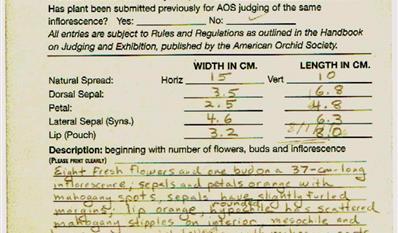 Has plant been submitted previously for AOS judging of the same
inflorescence? Yes: No: ✓
All entries are subject to Rules and Regulations as outlined in the Handbook
on Judging and Exhibition, published by the American Orchid Society.
WIDTH IN CM. LENGTH IN CM.
Natural Spread: Horiz 15 Vert 10
Dorsal Sepal: 3.5 6.8
Petal: 2.5 4.8
Lateral Sepal (Syns.) 4.6 6.3
Lip (Pouch) 3.2 8.0
Description: beginning with number of flowers, buds and inflorescence
(PLEASE PRINT CLEARLY)
Eight fresh flowers and one bud on a 37-cm-long
inflorescence; sepals and petals orange with
mahogany spots, sepals have slightly furled
margins; lip orange, rounded hypochile has scattered
mahogany stipples on interior, mesochile and